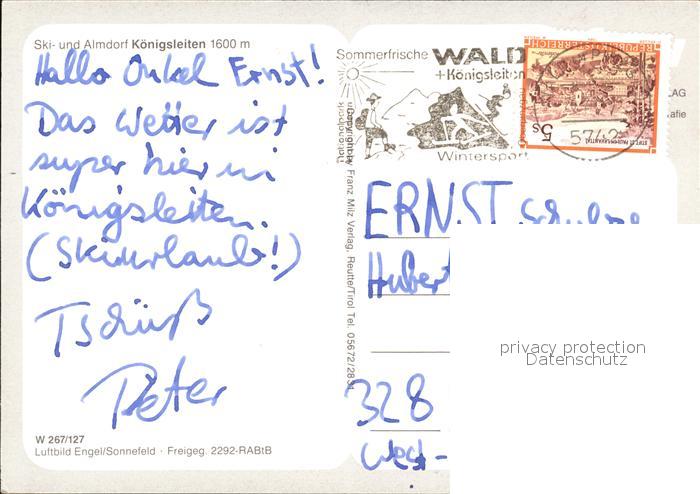 Ski- und Almdorf Königsleiten 1600 m
Hallo Onkel Ernst!
Das Wetter ist
super hier in
Königsleiten.
(Skiurlaub!)
Tschüß
Peter
W 267/127
Luftbild Engel/Sonnefeld · Freigeg. 2292-RABtB
Sommerfrische WALD
+Königsleiten
Nationalpark
Wintersport
REPUBLIK ÖSTERREICH
5s
5742
LAG
afie
Copyright by Franz Milz Verlag, Reutte/Tirol Tel. 05672/2831
ERNST
Hubert
328
West-
privacy protection
Datenschutz